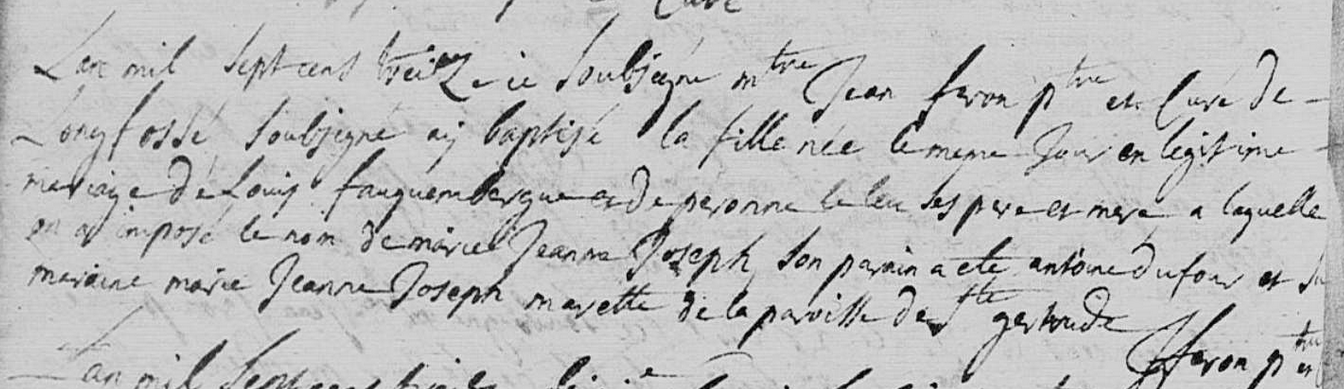 Curé
L'an mil sept cens treize ie soubsigné mtre Jean feron ptre et Curé de
Longfossé soubsigné aÿ baptisé la fille née le meme Jour en legitime
mariage de Louis fauquembergue et de peronne le leu ses pere et mere a laquelle
on a imposé le nom de marie Jeanne Joseph son parain a ete antoine dufour et sa
maraine marie Jeanne Joseph marette de la paroisse de ste gertrude
fferon ptre et
L'an mil sept cens